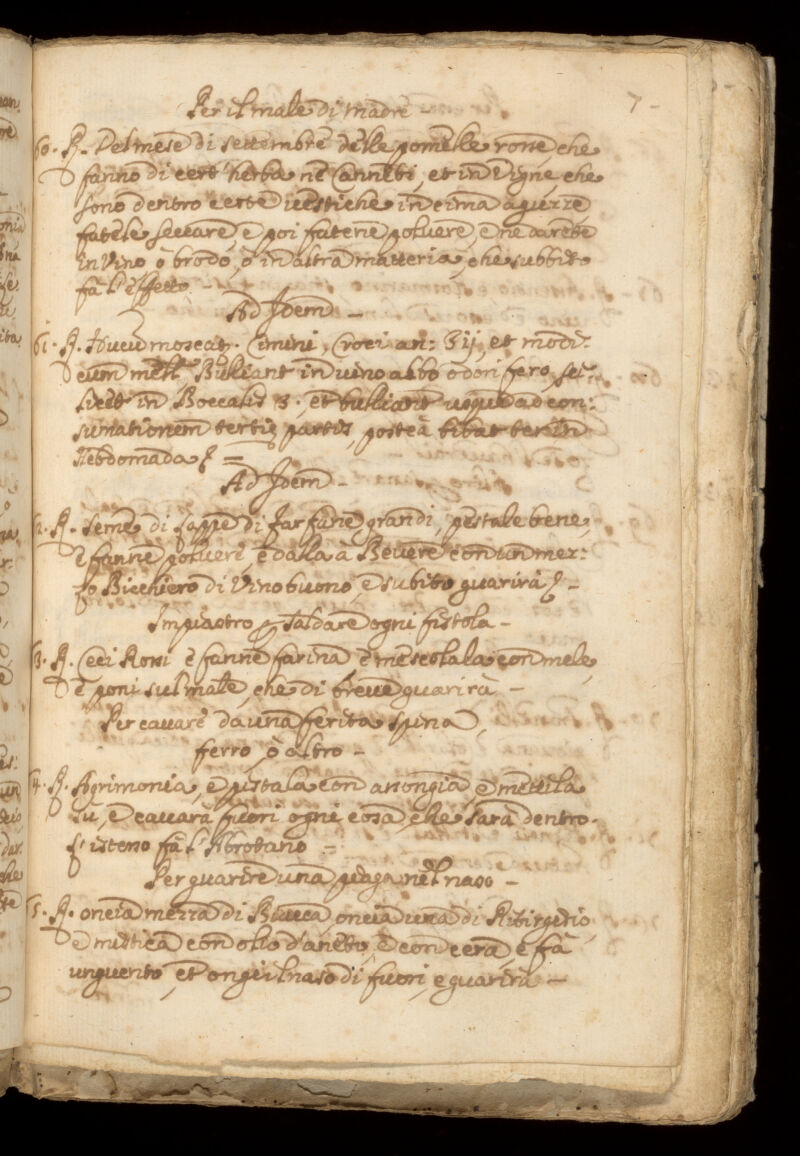 7 -
Per il male di madre
60. R. Del mese di settembre delle pomelle rosse, che
fanno di cert' herba ne Canneti, et in Vigne, che
sono dentro certe vessiche in cima aguzze
fatele seccare, e poi fatene polvere, e ne darete
in Vino ò brodo, ò in altra matteria, che subbito
fà l'effetto -
Ad Idem -
61. R. moscat. Cimini, Croci an: Ʒij, et modi:
cum Bulliant in vino albo odorifero, sci:
licet in Boccalis 3. et bulliant usque ad con:
sumationem tertiæ partis, postea bibat ter in
Hebdomada =
Ad Idem -
62. R. seme di di farfane grandi, pestale bene,
e fanne polvere, e dalla à Bevere con un mez:
zo Bicchiero di Vino buono, e subito guarirà -
Impiastro saldare ogni fistola -
63. R. Ceci Rossi e fanne farina e mescolala con mele,
e poni sul male, che di breve guarirà -
Per cavare da una ferita spina,
ferro, ò altro -
64. R. Agrimonia, e pistala con assongia, e mettila
sù, e caverà fuori ogni cosa, che sarà dentro.
l'istesso fà l'Abrotano -
Per guarire una piaga nel naso -
65. R. oncia mezza di Biacca, oncia una di
e mistica con olio d'aneto, e con cera, e fà
unguento, et ongi il naso di fuori, e guarirà -